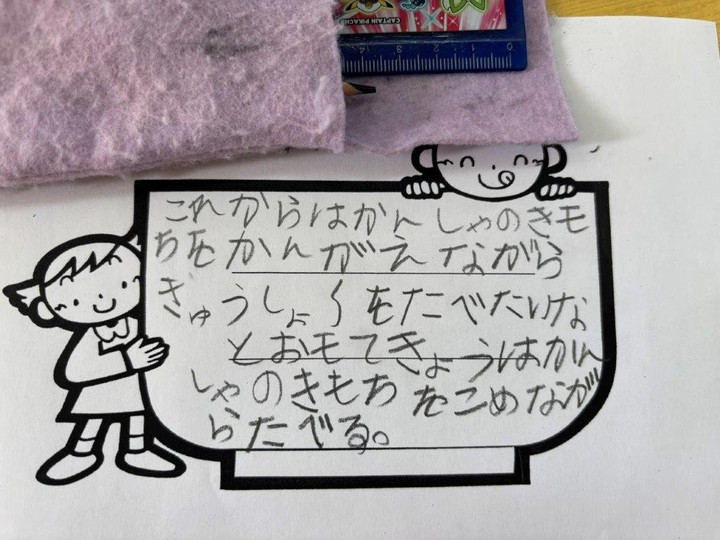 CAPTAIN PIKACHU
これからはかんしゃのきモ
ちをかんがえながら
きゅうしょくをたべたいな
とおモてきょうはかん
しゃのきもちをこめなが
らたべる。